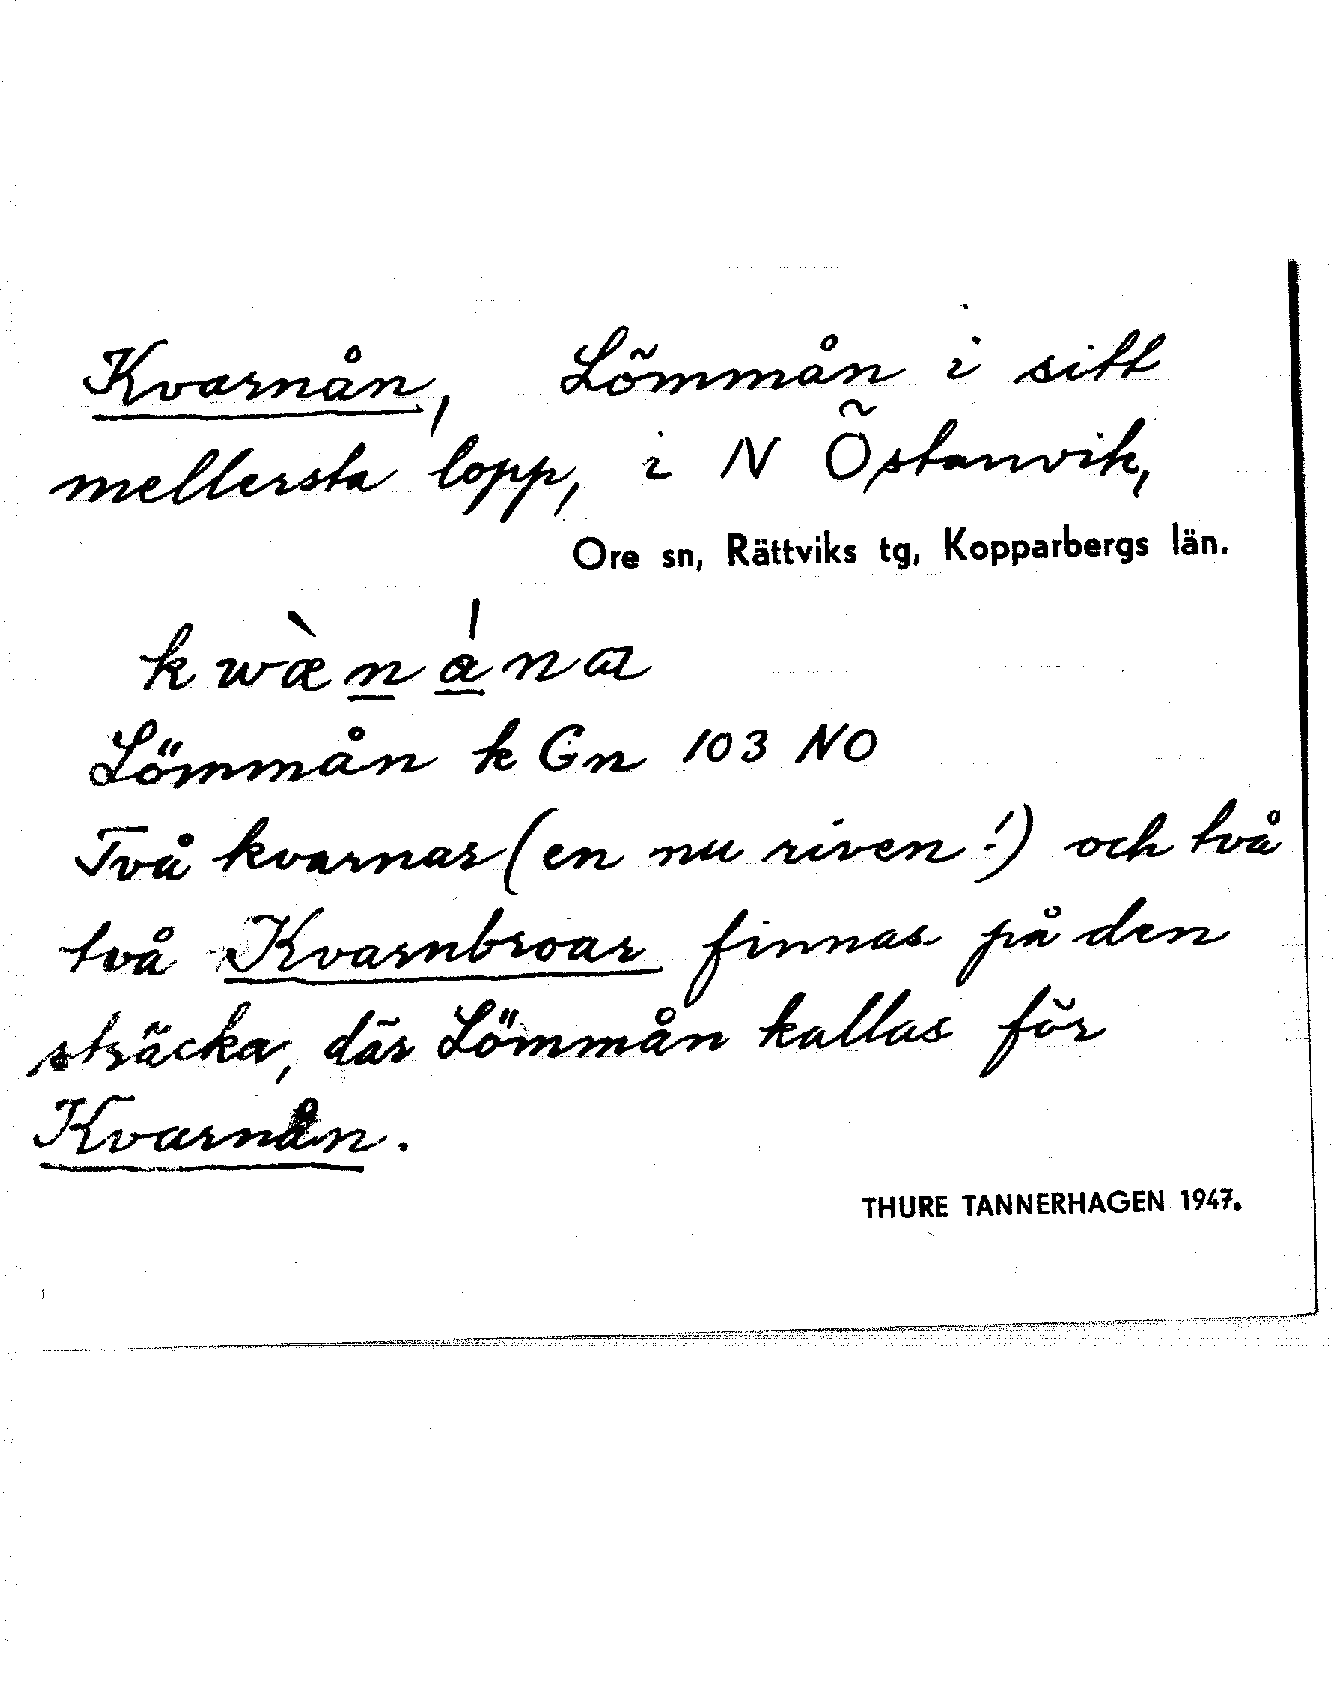 Kvarnån, Lömmån i sitt
mellersta lopp, i N Östanvik,
Ore sn, Rättviks tg, Kopparbergs län.
kwæ̀nána
Lömmån k Gn 103 NO
Två kvarnar (en nu riven!) och två
två Kvarnbroar finnas på den
sträcka, där Lömmån kallas för
Kvarnån.
THURE TANNERHAGEN 1947.